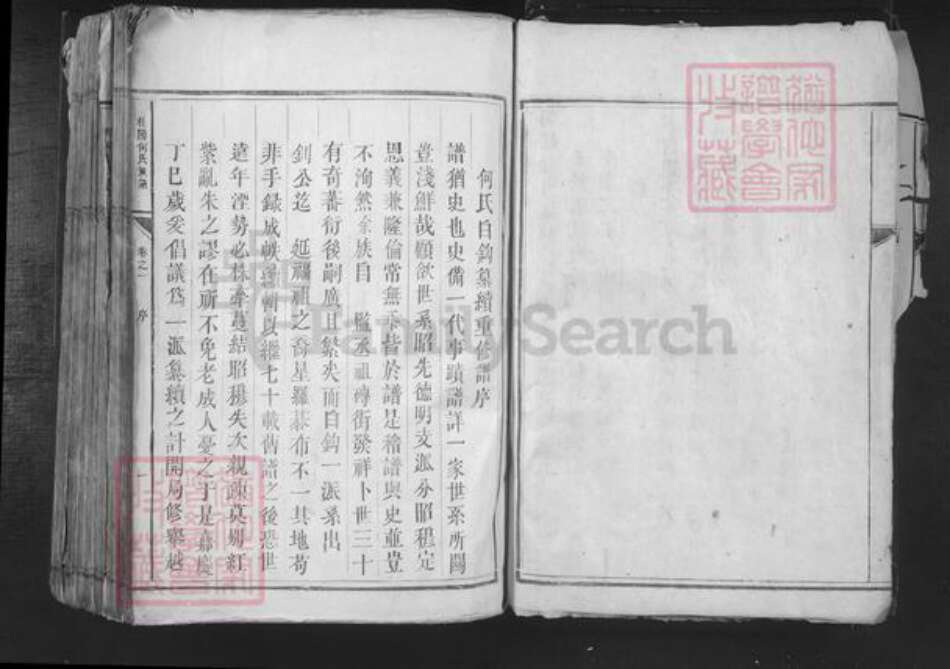 何氏自鈞纂續重修譜序
譜猶史也史備一代事蹟譜詳一家世系所關
豈淺鮮哉顧敘世系昭先德明支派分昭穆定
恩義兼隆倫常無忝皆於譜是稽譜與史並豈
不洵然余族自 監丞祖磚街發祥卜世三十
有奇蕃衍後嗣廣且繁矣而自鈞一派系出
釗公迄 延禰祖之裔星羅棋布不一其地苟
非手錄成帙彙輯以繼七十載舊譜之後恐世
遠年湮勢必株牽蔓結昭穆失次親疎莫別紅
紫亂朱之謬在所不免老成人憂之于是嘉慶
丁巳歲爰倡議為一派纂續之計開局修舉越
何氏族譜
卷之一 序
一
FamilySearch